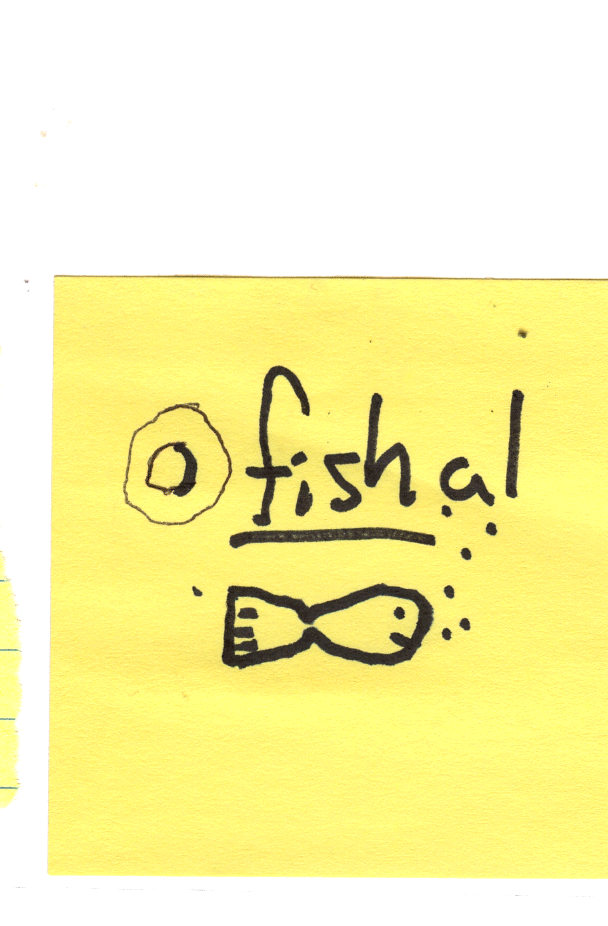 O fishal